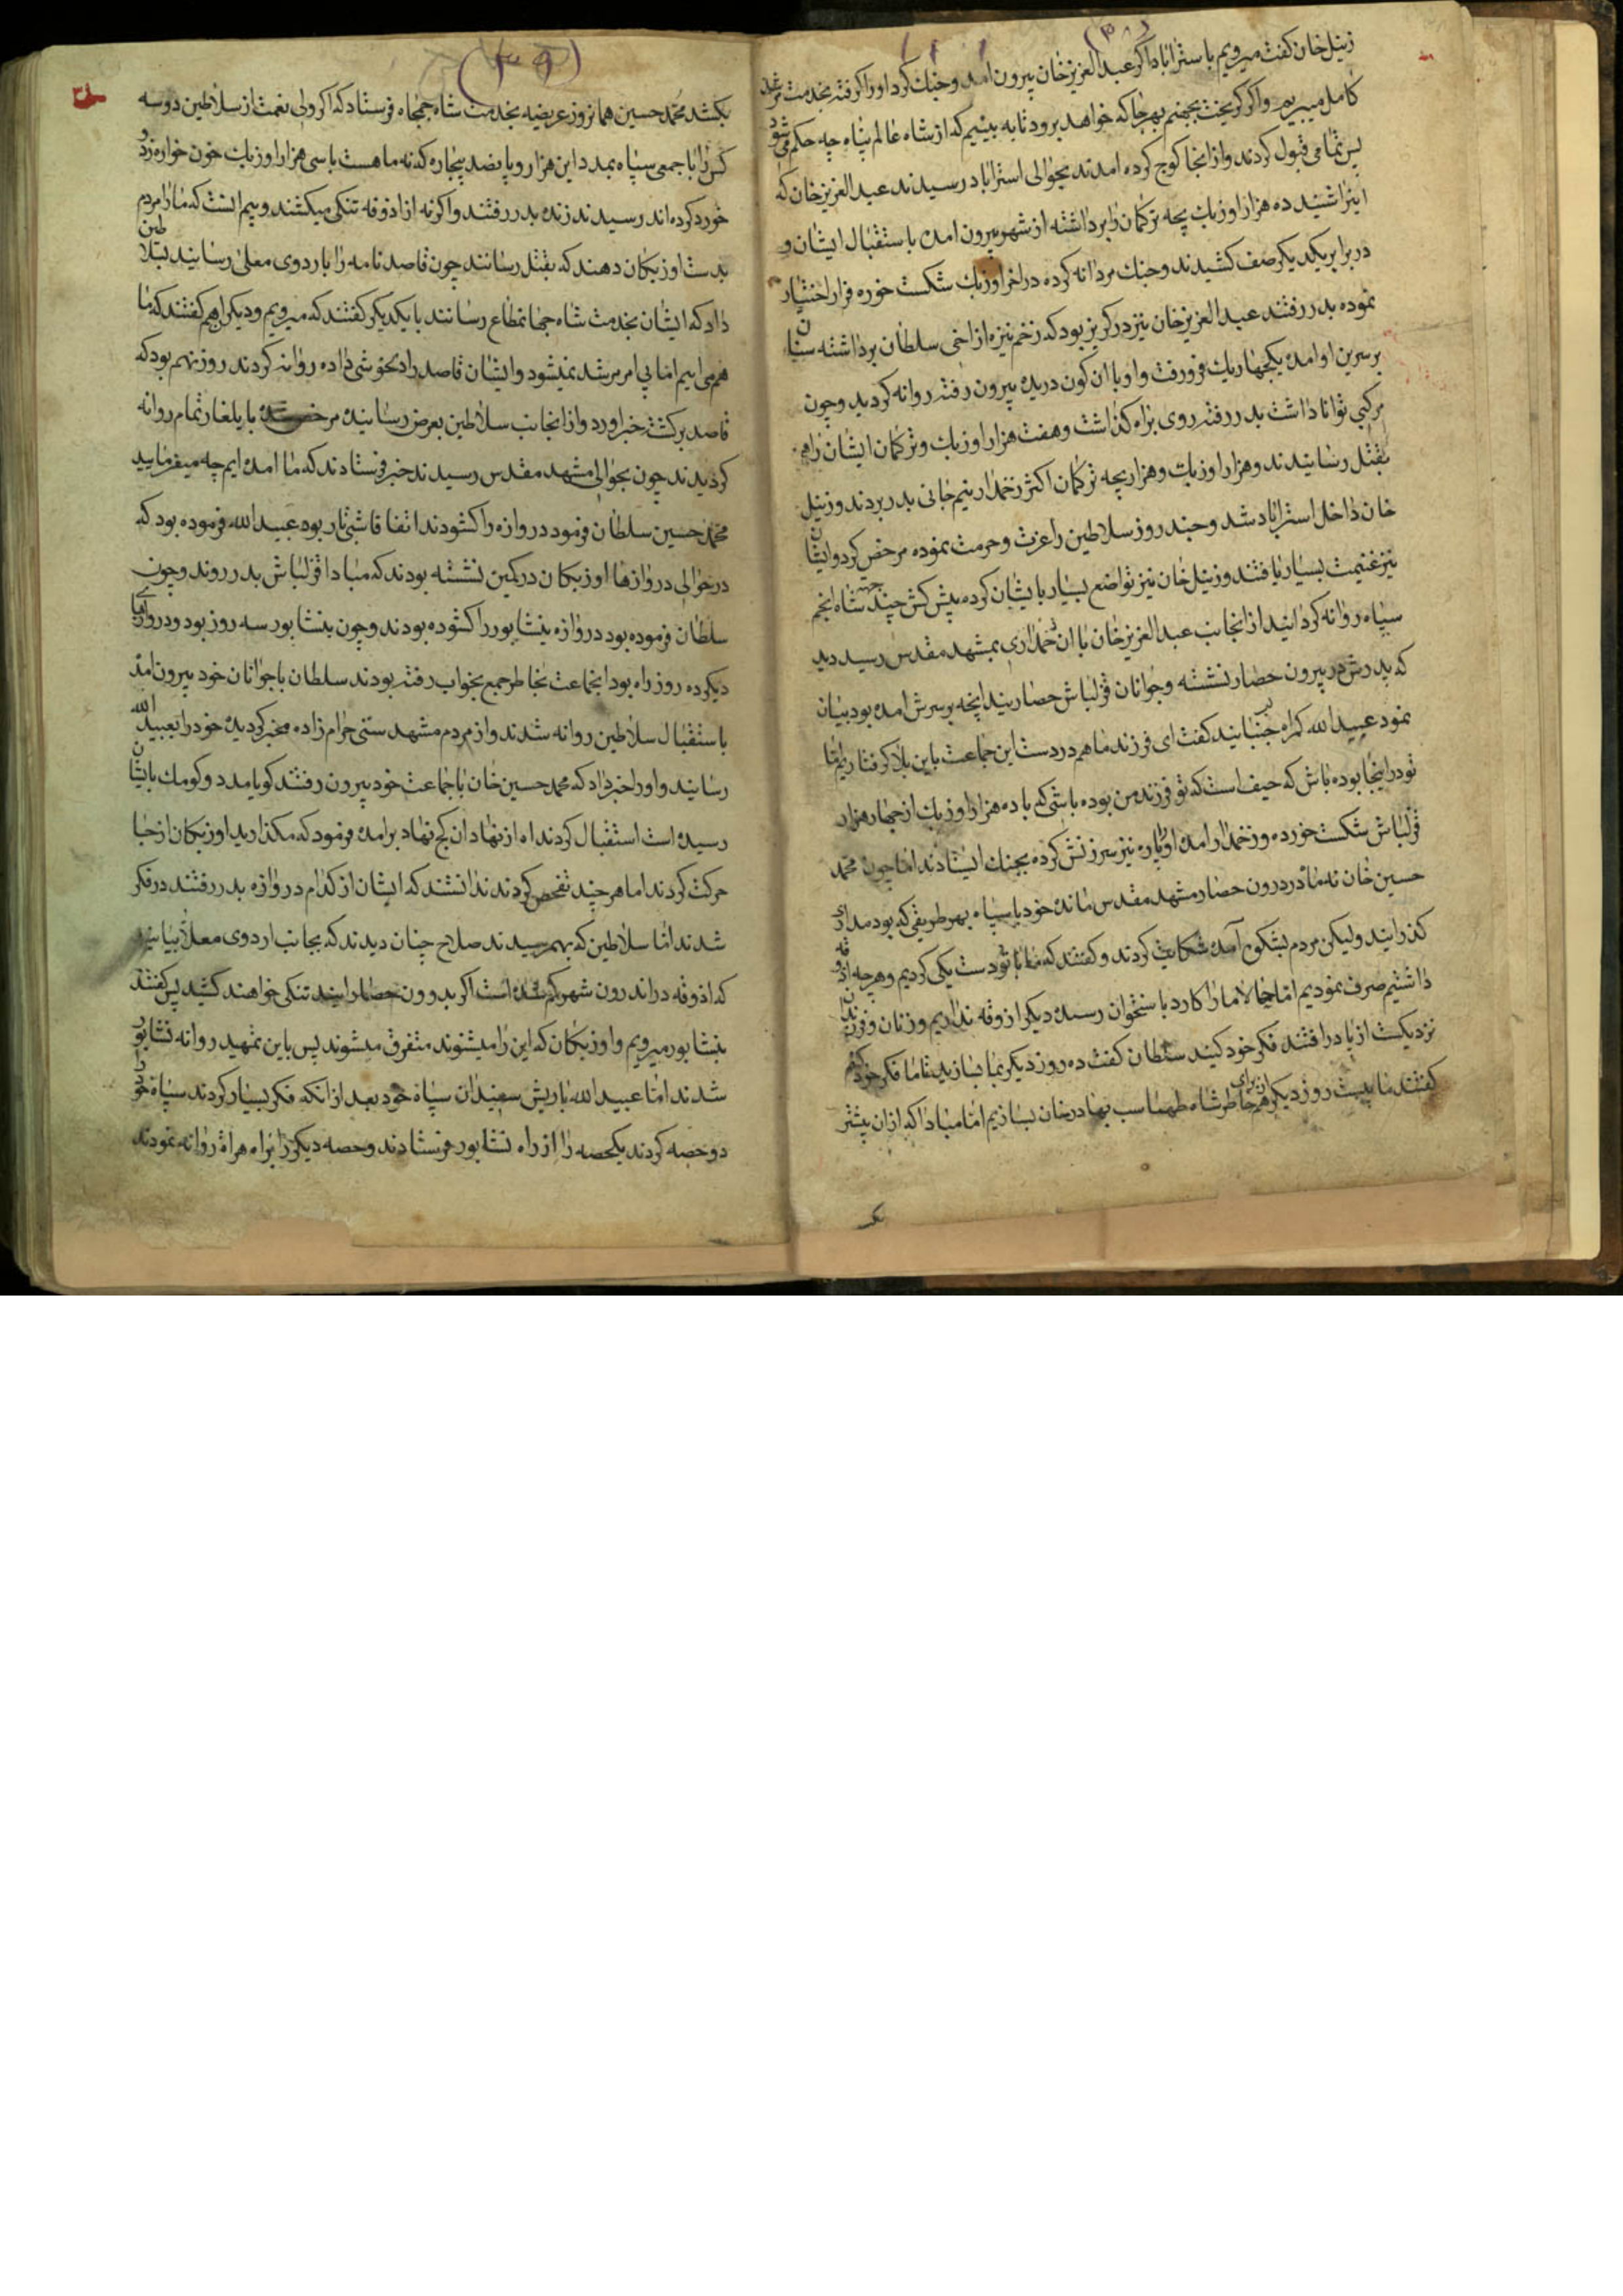 (۳۸)
زنیل خان کفت میرویم باستراباد اکر عبدالعزیز خان بیرون امد وجنك کرد اورا کرفته بخدمت مرشد
کامل میبریم واکر کریخت بجهنم بهرجا که خواهد برود تا به بینیم که از شاه عالم پناه چه حکم می شود
پس تمامی قبول کردند واز انجا کوچ کرده امدند بحوالی استراباد رسیدند عبدالعزیز خان که
اینرا شنید ده هزار اوزبك بچه ترکمان را برداشته از شهر بیرون امده باستقبال ایشان و
در برابر یکدیکر صف کشیدند وجنك مردانه کرده دراخر اوزبك شکست خوره فرار اختیار
نموده بدر رفتند عبدالعزیز خان نیز در کریز بود که زخم نیزه از اخی سلطان برداشته سنان
بر سرین او امده یکچهاریك فرو رفت واو با ان کون دریده بیرون رفته روانه کردید وچون
مرکبی توانا داشت بدر رفته روی براه کذاشت وهفت هزار اوزبك وترکمان ایشان راهم
بقتل رسانیدند وهزار اوزبك وهزار بچه ترکمان اکثر زخمدار نیم جانی بدر بردند وزنیل
خان داخل استراباد شد وچند روز سلاطین را عزت وحرمت نموده مرخص کرد وایشان
نیز غنیمت بسیار یافتند وزنیل خان نیز تواضع بسیار بایشان کرده پیش کش چند جهته شاه انجم
سپاه روانه کردانید از انجانب عبدالعزیز خان با ان زخمداری بمشهد مقدس رسید دید
که پدرش در بیرون حصار نشسته وجوانان قزلباش حصار بند انچه بر سرش امده بود بیان
نمود عبیدالله کمراه سر جنبانید کفت ای فرزند ما هم در دست این جماعت باین بلا کرفتاریم تا
تو در اینجا بوده باش که حیف است که تو فرزند من بوده باشی که با ده هزار اوزبك از چهار هزار
قزلباش شکست خورده وزخمدار امده او پاره نیز سرزنش کرده بجنك ایستادند اما چون محمد
حسین خان نه ماه در درون حصار مشهد مقدس مانده خود با سپاه بهر طریقی که بود مدارا
کذرانید ولیکن مردم بشکوه آمده شکایت کردند وکفتند که ما با تو دست یکی کردیم وهرچه اذوقه
داشتیم صرف نمودیم اما حالا مارا کارد باستخوان رسیده دیکر ازوقه نداریم وزنان وفرزندان
نزدیکست از پا در افتند فکر خود کنید سلطان کفت ده روز دیکر بما بسازید تا ما فکر خود کنیم
کفتند ما بیست روز دیکر هم از برای خاطر شاه طهماسب بهادرخان بسازیم اما مبادا که ازان بیشتر
(۳۹)
بکشد محمدحسین همانروز عریضه بخدمت شاه جمجاه فرستاد که اکر ولی نعمت از سلاطین دوسه
کس را با جمعی سپاه بمدد این هزار وپانصد بیچاره که نه ماهست با سی هزار اوزبك خون خواره زدو
خورد کرده اند رسیدند زنده بدر رفتند واکر نه از اذوقه تنکی میکشند وبیم انست که مارا مردم
بدست اوزبکان دهند که بقتل رسانند چون قاصد نامه را باردوی معلی رسانید بسلاطین
داد که ایشان بخدمت شاه جهانمطاع رسانند بایکدیکر کفتند که میرویم ودیکران هم کفتند که ما
هم می ائیم اما بی امر مرشد نمیشود وایشان قاصد را دلخوشی داده روانه کردند روز نهم بود که
قاصد برکشته خبر اورد واز انجانب سلاطین بعرض رسانیده مرخص شده بایلغار تمام روانه
کردیدند چون بحوالی مشهد مقدس رسیدند خبر فرستادند که ما امده ایم چه میفرمایید
محمدحسین سلطان فرمود دروازه را کشودند اتفاقا شبی تار بود عبیدالله فرموده بود که
در حوالی دروازها اوزبکان در کمین نشسته بودند که مبادا قزلباش بدر روند وچون
سلطان فرموده بود دروازه نیشابور را کشوده بودند وچون نیشابور سه روز بود ودروازهای
دیکر ده روز راه بود انجماعت بخاطر جمع بخواب رفته بودند سلطان با جوانان خود بیرون امد
باستقبال سلاطین روانه شدند واز مردم مشهد سنی حرام زاده مخبر کردیده خودرا بعبیدالله
رسانید واورا خبر داد که محمدحسین خان با جماعت خود بیرون رفتند کویا مدد وکومك بایشان
رسیده است استقبال کردند اه از نهاد ان کج نهاد برامده فرمود که مکذارید اوزبکان از جا
حرکت کردند اما هرچند تفحص کردند ندانستند که ایشان از کدام دروازه بدر رفتند در فکر
شدند اما سلاطین که بهم رسیدند صلاح چنان دیدند که بجانب اردوی معلا بیایند
که اذوقه در اندرون شهر کم شده است اکر بدرون حصار ایند تنکی خواهند کشید پس کفتند
بنشابور میرویم واوزبکان که این را میشنوند متفرق میشوند پس باین تمهید روانه نشابور
شدند اما عبیدالله با ریش سفیدان سپاه خود بعد از انکه فکر بسیار کردند سپاه خودرا
دو حصه کردند یکحصه را از راه نشابور فرستادند وحصه دیکر را براه هراة روانه نمودند